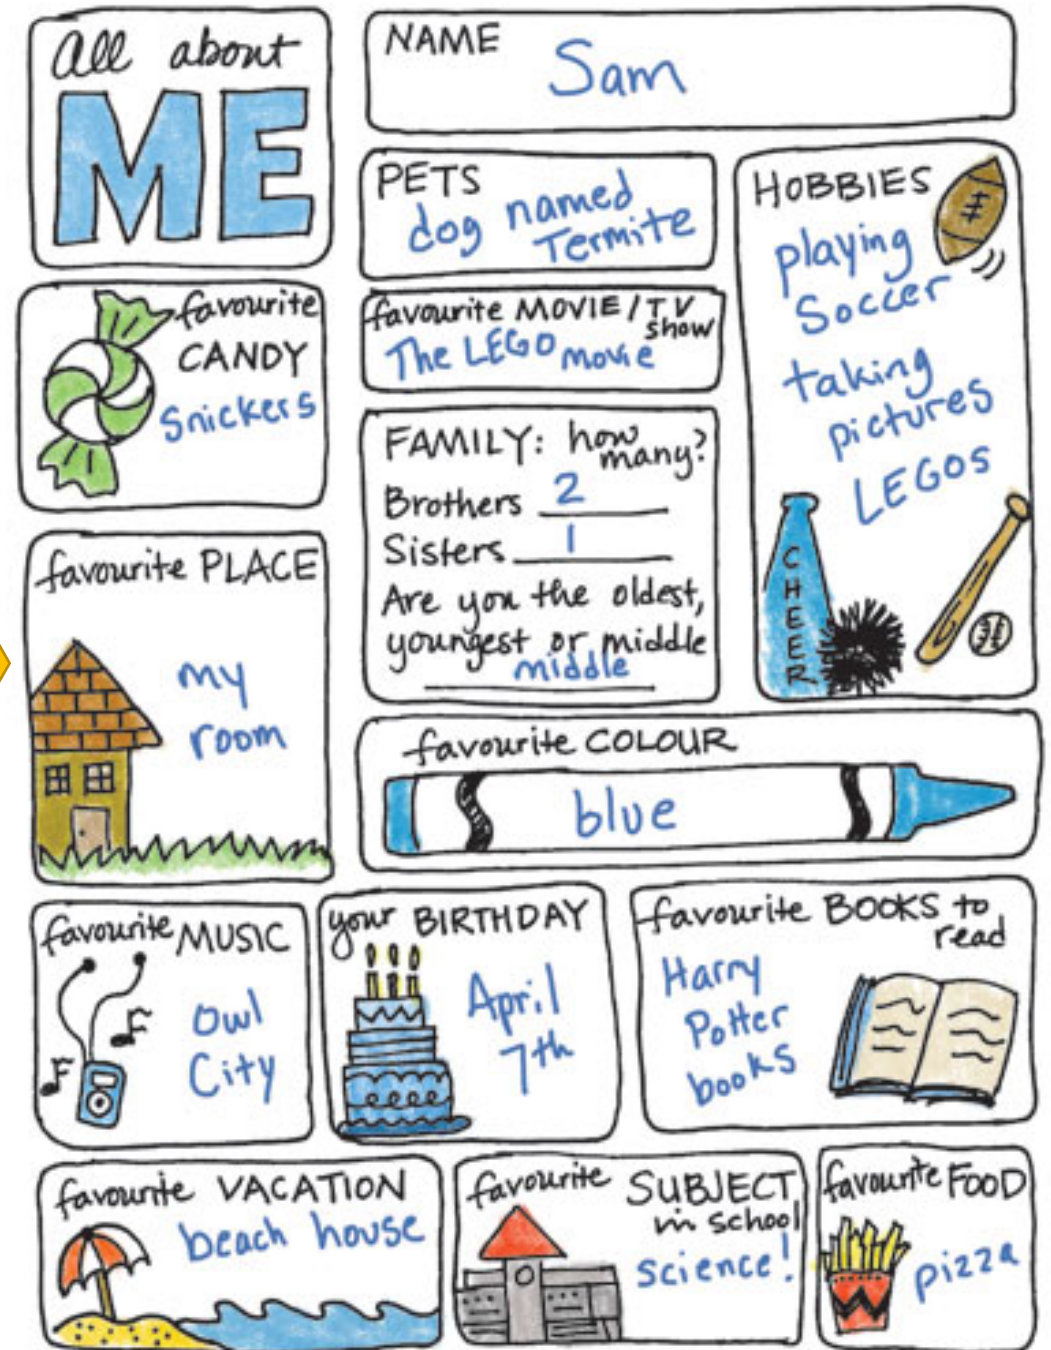 All about
ME
NAME
Sam
PETS
dog named
Termite
HOBBIES
playing
Soccer
taking
pictures
LEGOS
CHEER
favourite
CANDY
Snickers
favourite MOVIE/TV
show
The LEGO movie
FAMILY: how
many?
Brothers 2
Sisters 1
Are you the oldest,
youngest or middle
middle
favourite PLACE
my
room
favourite COLOUR
blue
favourite MUSIC
Owl
City
your BIRTHDAY
April
7th
favourite BOOKS to
read
Harry
Potter
books
favourite VACATION
beach house
favourite SUBJECT
in school
science!
favourite FOOD
pizza